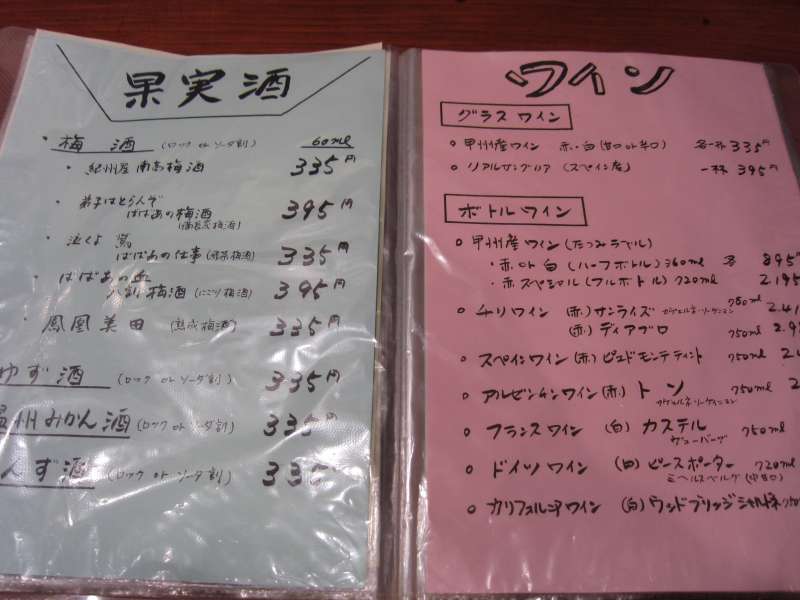 果実酒
・梅酒 (ロック or ソーダ割) 60ml
・紀州産 南高梅酒 335円
・弟子はとらんぞ
ばばあの梅酒 395円
・泣くよ
ばばあの仕事 335円
・ばばあの
梅酒 (にごり梅酒) 395円
・鳳凰美田 (熟成梅酒) 335円
ゆず酒 (ロック or ソーダ割) 335円
州みかん酒 (ロック or ソーダ割) 335
んず酒 (ロック or ソーダ割) 335
ワイン
グラスワイン
○ 甲州産ワイン 赤・白 (甘口 or 辛口) 各一杯 335円
○ リアルサングリア (スペイン産) 一杯 395円
ボトルワイン
○ 甲州産ワイン (たつみラベル)
・赤 or 白 (ハーフボトル) 360ml 各 895円
・赤 スペシャル (フルボトル) 720ml 2,195
○ チリワイン (赤) サンライズ カヴェルネ・ソーヴィニヨン 750ml
(赤) ディアブロ 750ml
○ スペインワイン (赤) ピュドモンテティント 750ml
○ アルゼンチンワイン (赤) トソ 750ml
カヴェルネ・ソーヴィニヨン
○ フランスワイン (白) カステル 750ml
○ ドイツワイン (白) ピースポーター 720ml
ミヘルスベルグ (中甘口)
○ カリフォルニアワイン (白) ウッドブリッジシャルドネ